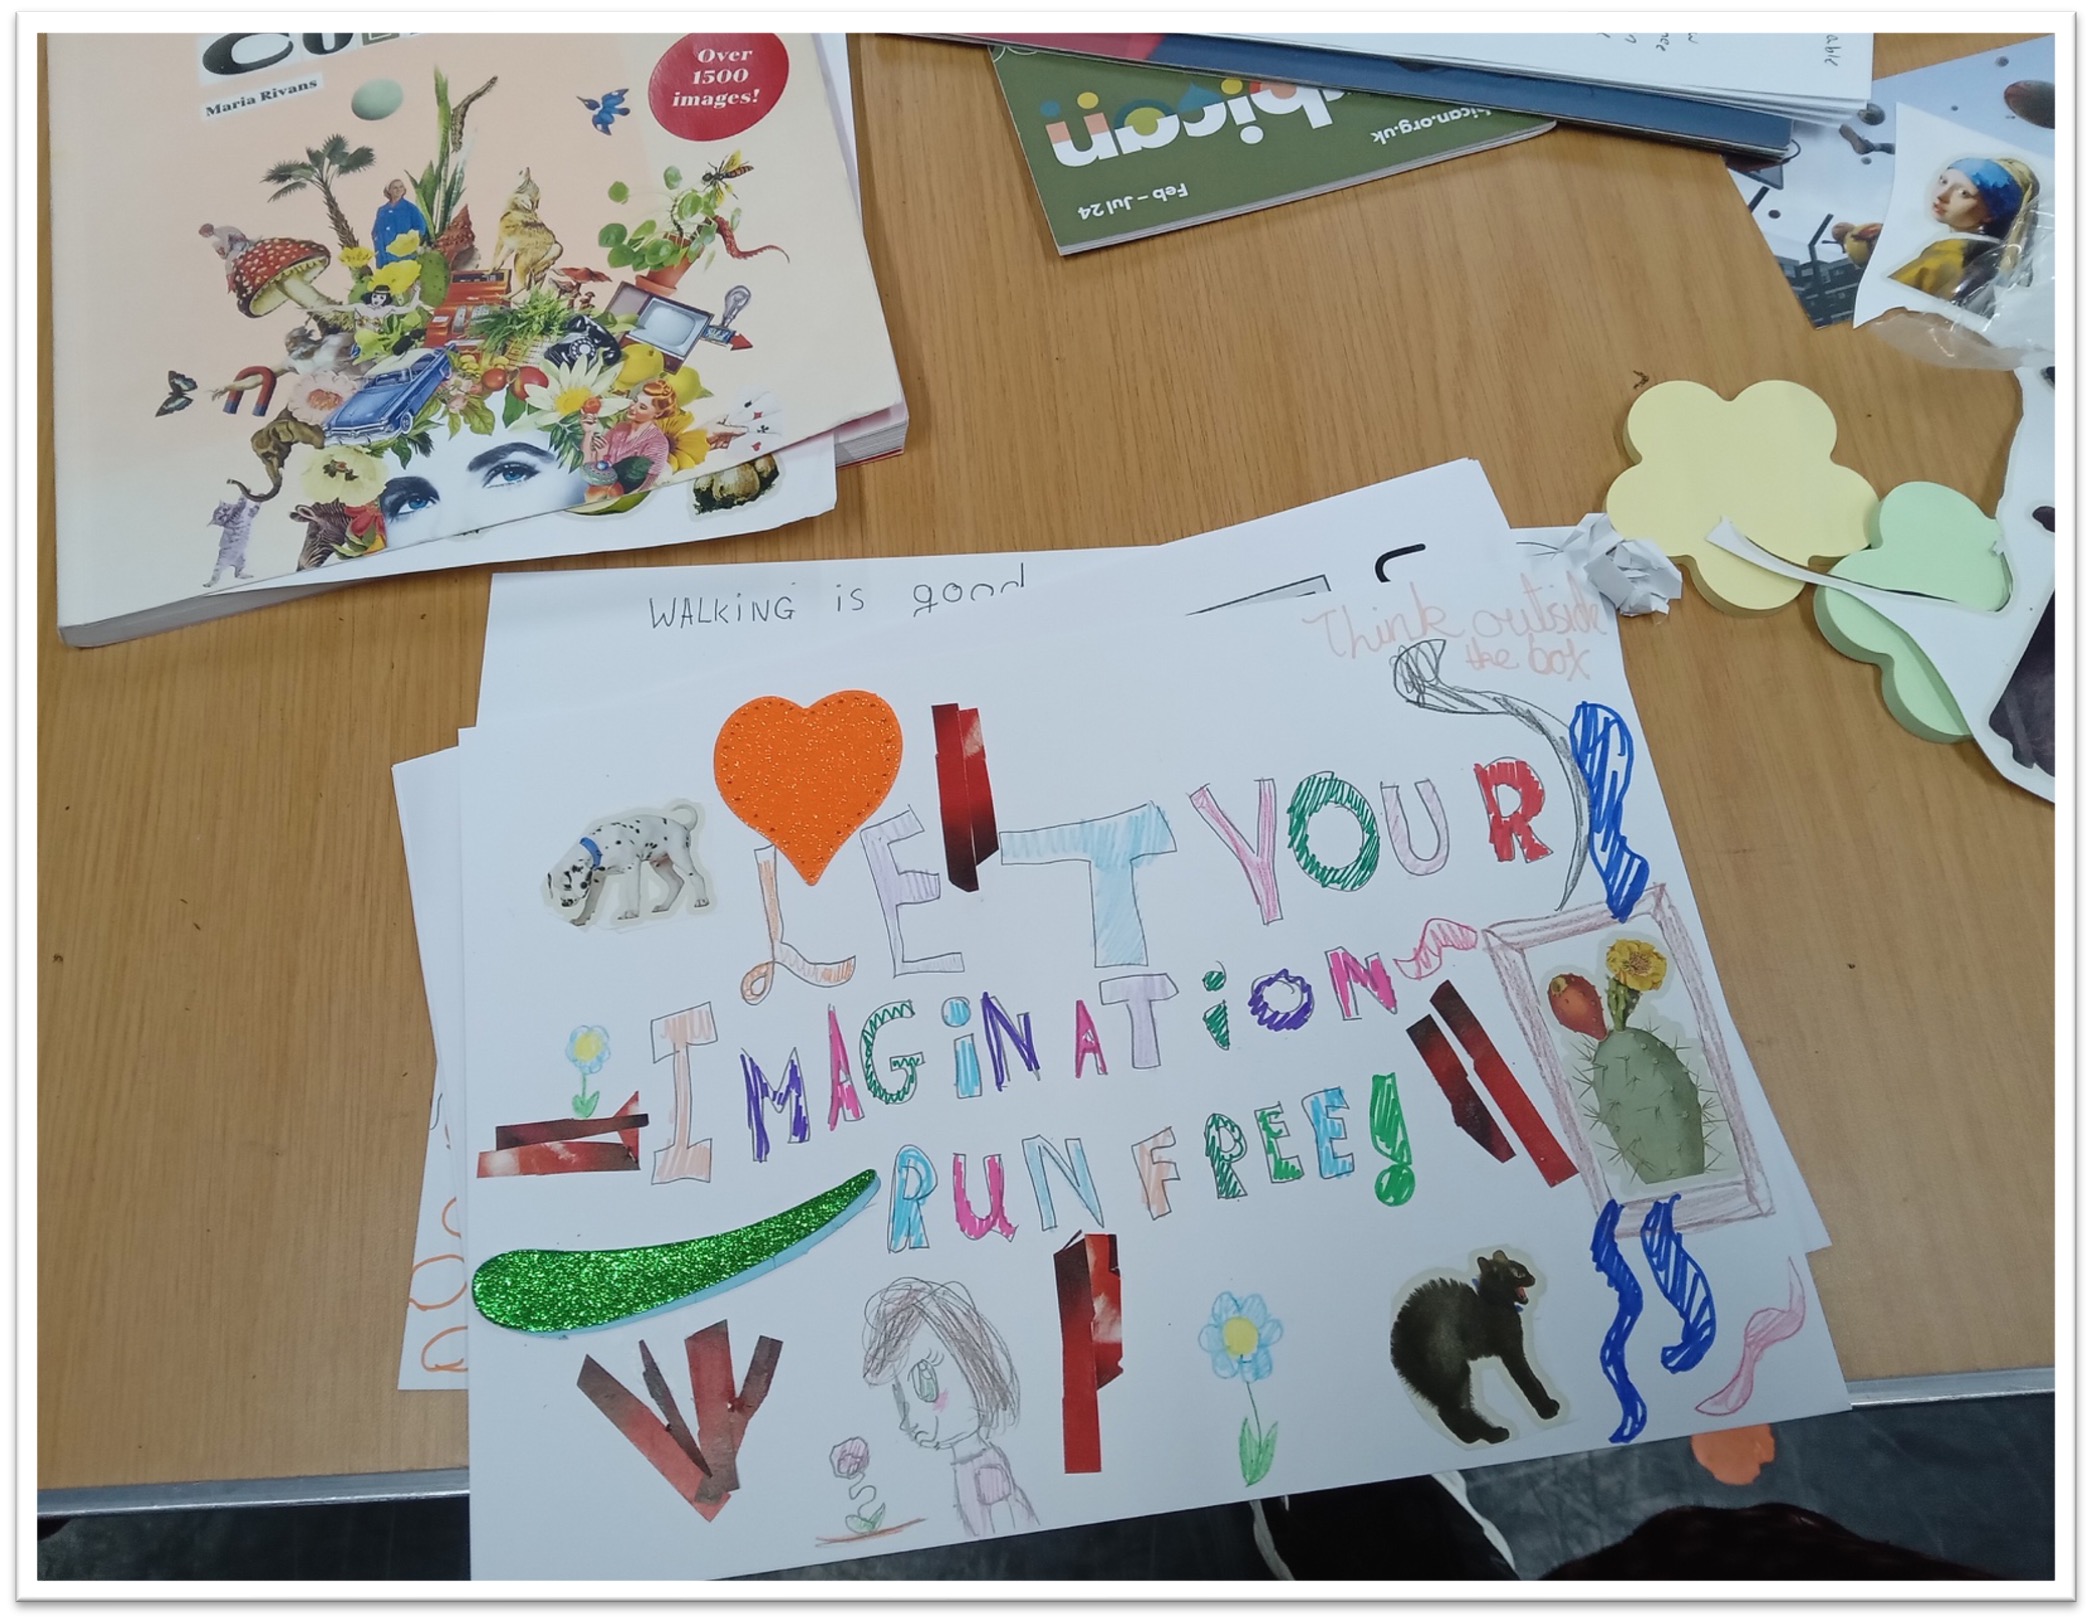 Maria Rivans
Over
1500
images!
bican
bican.org.uk
Feb – Jul 24
WALKING is good
Think outside
the box
LET YOUR
IMAGINATION
RUN FREE!